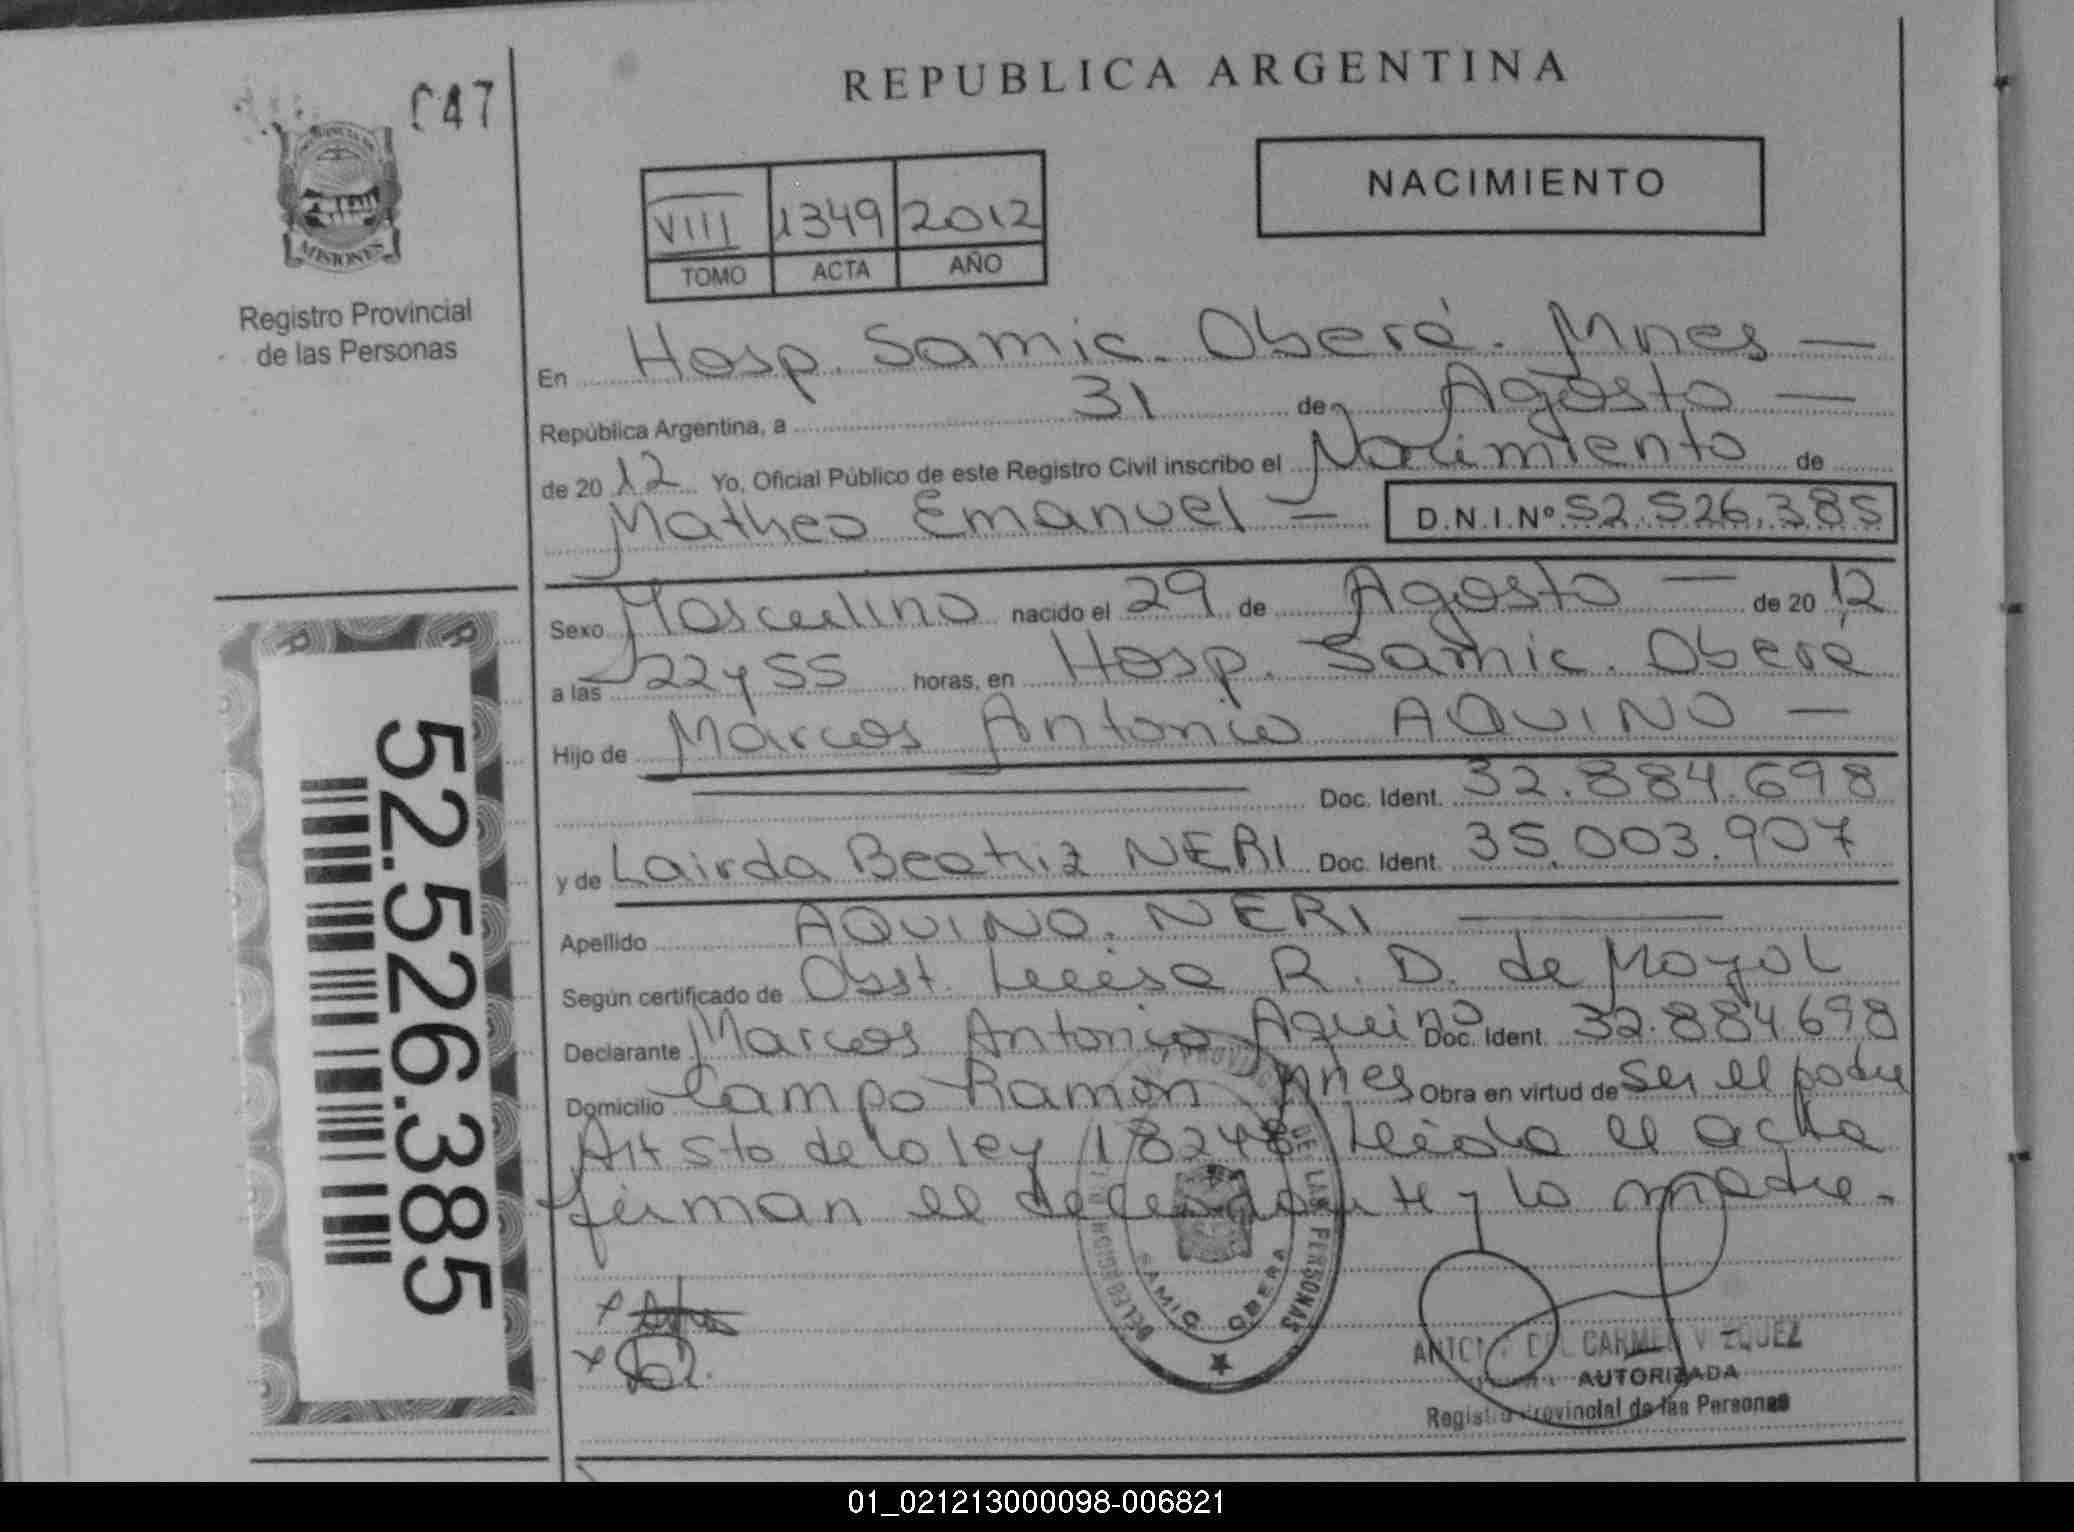 REPUBLICA ARGENTINA
047
MISIONES
Registro Provincial
de las Personas
VIII 1349 2012
TOMO ACTA AÑO
NACIMIENTO
En Hosp. Samic. Oberá. Mnes —
República Argentina, a 31 de Agosto —
de 20 12 Yo, Oficial Público de este Registro Civil inscribo el Nacimiento de
Matheo Emanuel — D.N.I.Nº 52.526.385
Sexo Masculino nacido el 29 de Agosto — de 20 12
a las 22 y 55 horas, en Hosp. Samic. Oberá
Hijo de Marcos Antonio AQUINO —
Doc. Ident. 32.884.698
y de Lairda Beatriz NERI Doc. Ident. 35.003.907
Apellido AQUINO. NERI
Según certificado de Obst. Luisa R. D. de Moyol
Declarante Marcos Antonio Aquino Doc. Ident. 32.884.698
Domicilio Campo Ramón Mnes Obra en virtud de Ser el padre
Art 5to de la ley 18248 Leida el acta
firman el declarante y la madre.
52.526.385
DE LAS PERSONAS
SAMIC OBERA
DEL CARMEN
AUTORIZADA
Registro Provincial de las Personas
01_021213000098-006821